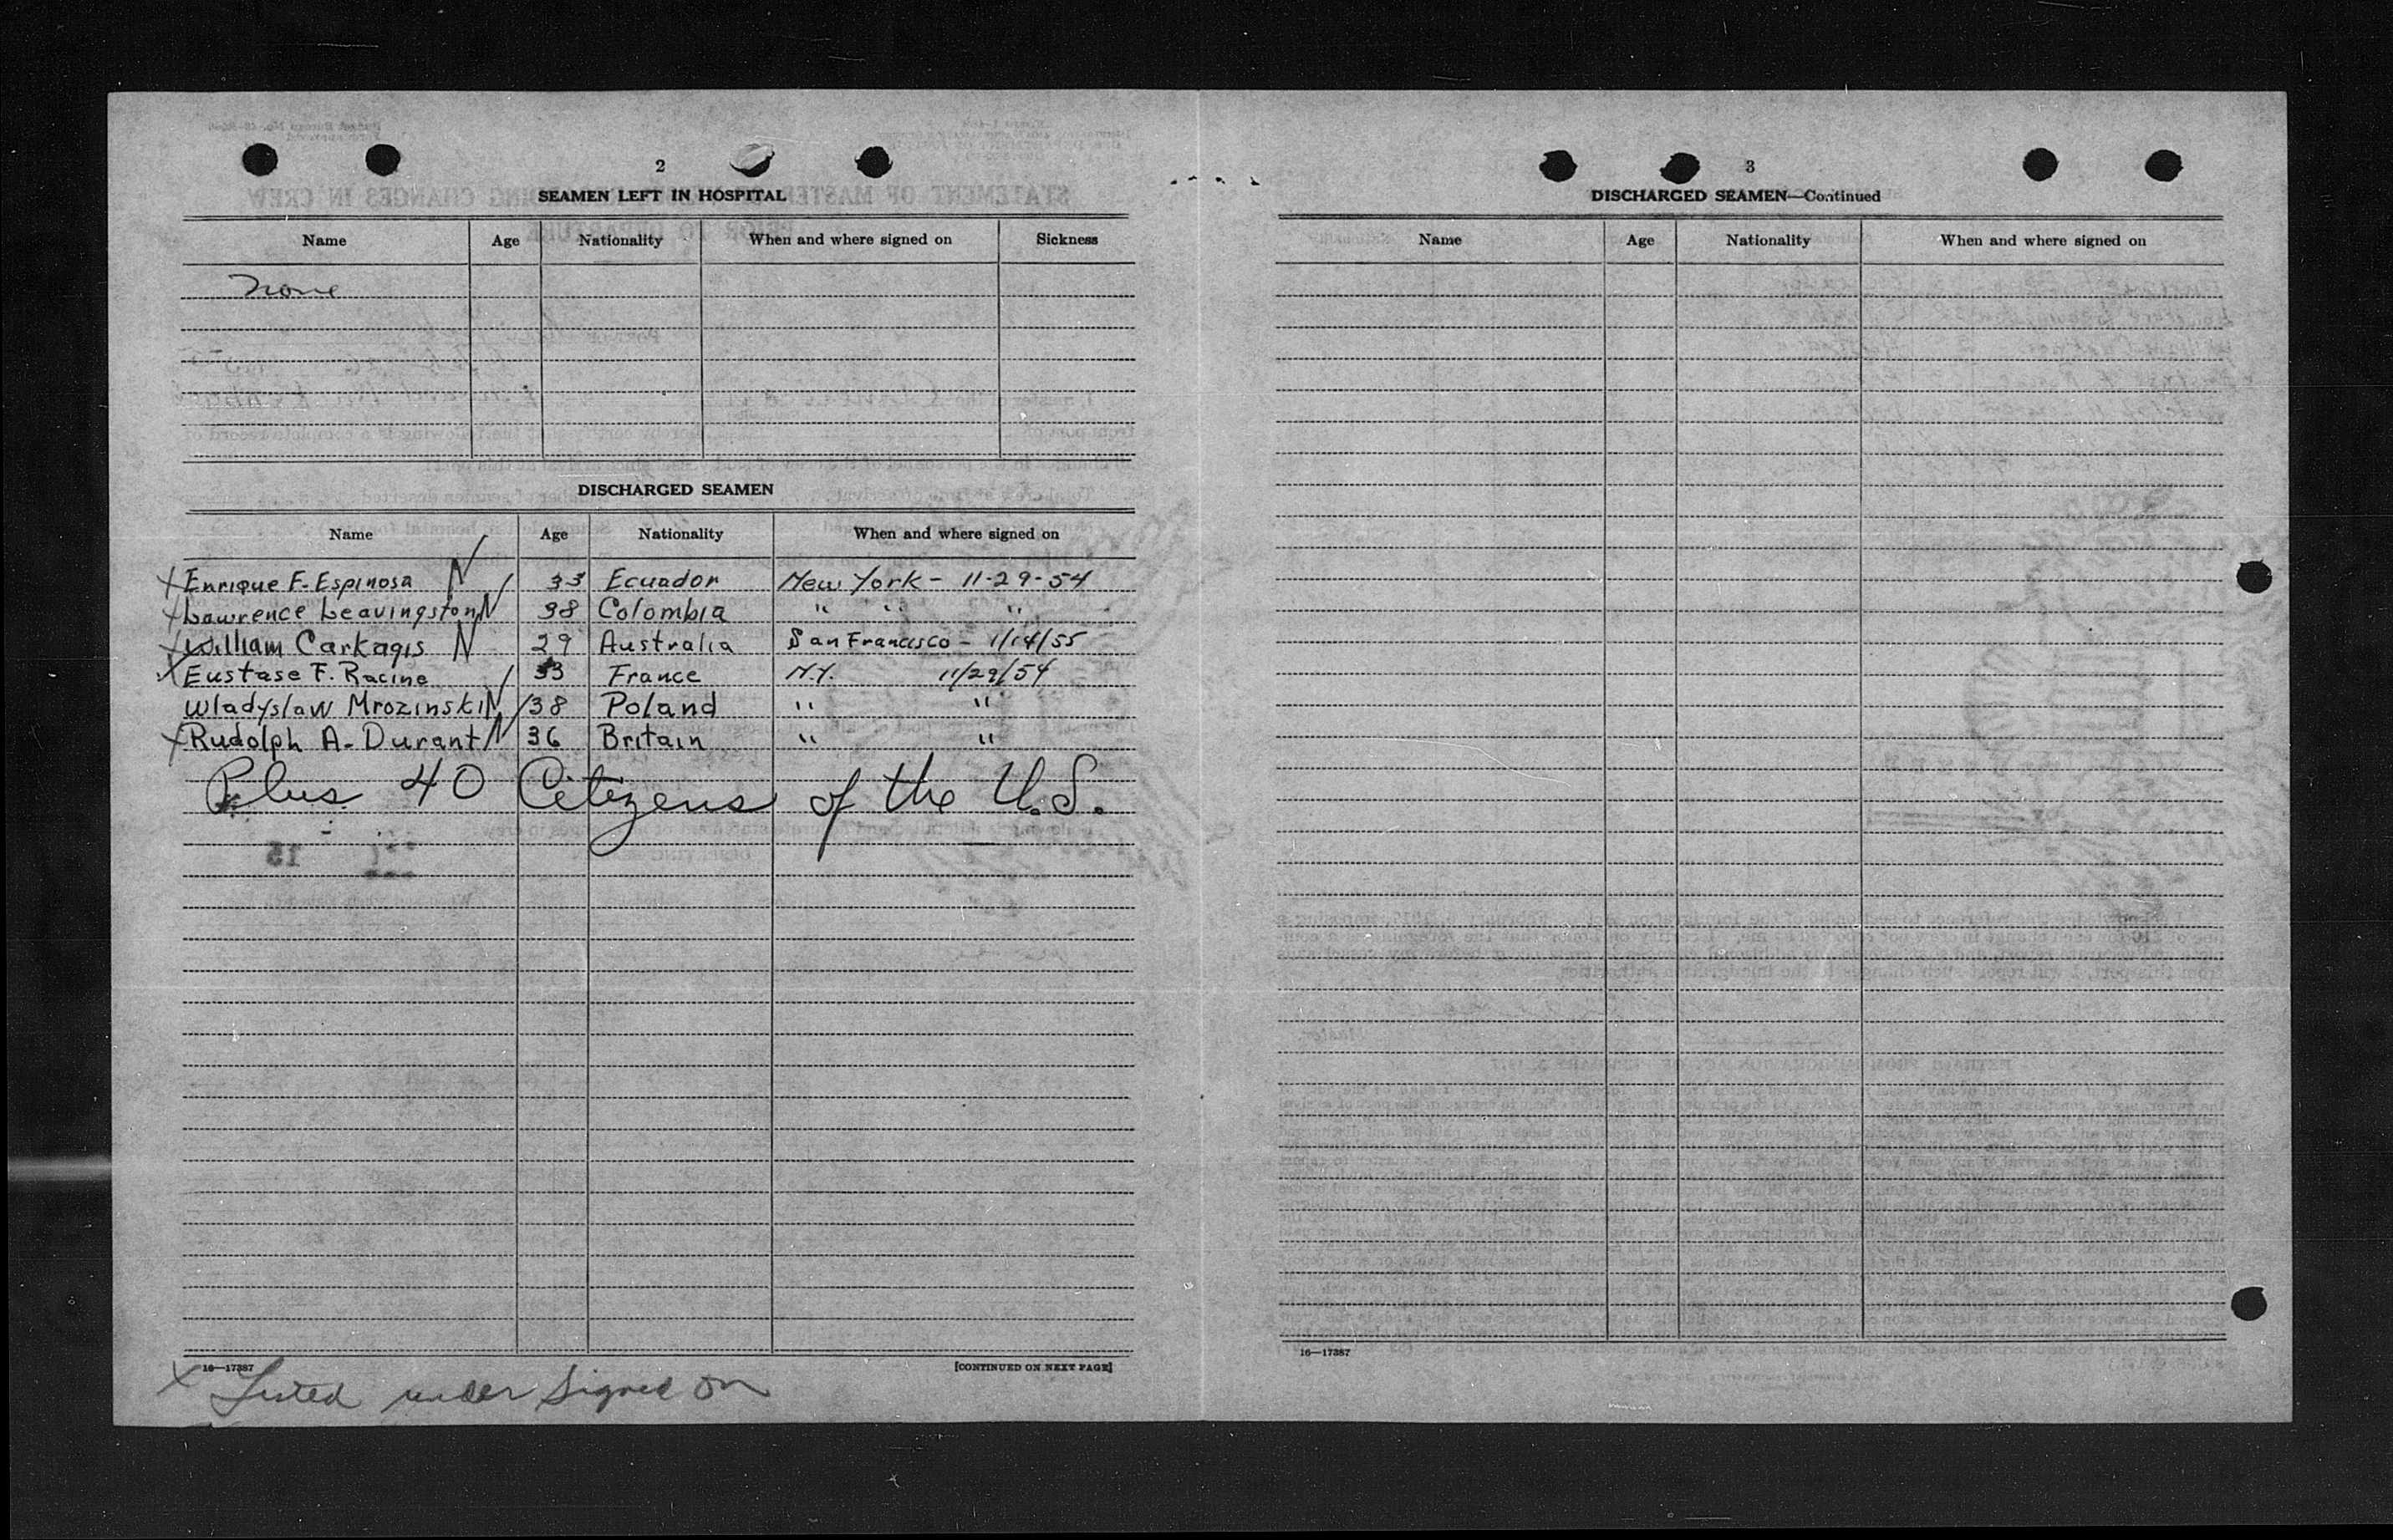 2
SEAMEN LEFT IN HOSPITAL
Name Age Nationality When and where signed on Sickness
None
DISCHARGED SEAMEN
Name Age Nationality When and where signed on
x Enrique F. Espinosa N 33 Ecuador New York - 11-29-54
x Lawrence Leavingston N 38 Colombia " " "
x William Carkagis N 29 Australia San Francisco - 1/14/55
x Eustase F. Racine 33 France N.Y. 11/29/54
Wladyslaw Mrozinski N 38 Poland " "
x Rudolph A. Durant N 36 Britain " "
Plus 40 Citizens of the U.S.
16—17387 [CONTINUED ON NEXT PAGE]
x Listed under Signed on
3
DISCHARGED SEAMEN—Continued
Name Age Nationality When and where signed on
16—17387